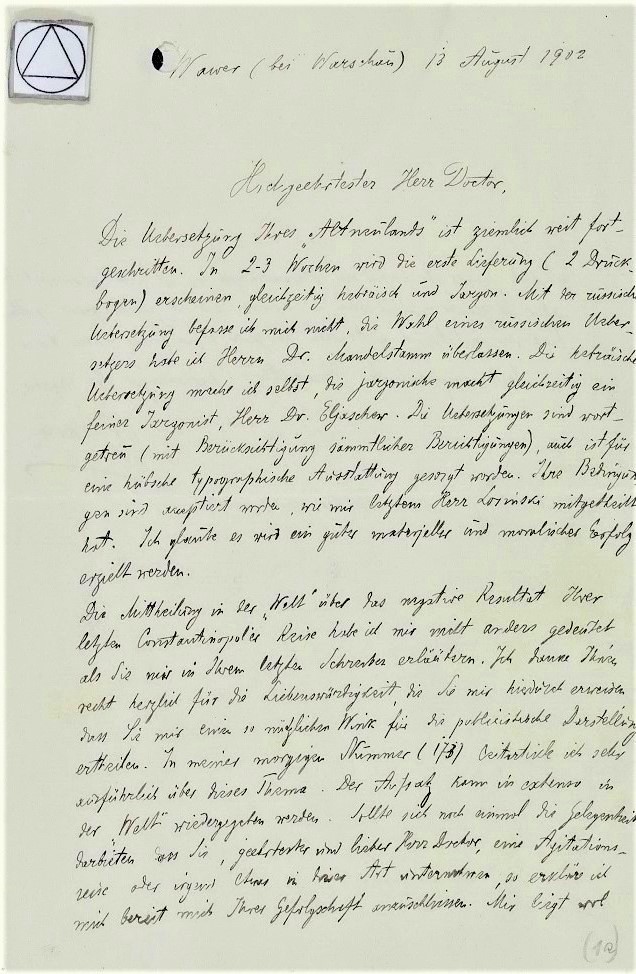 Wawer (bei Warschau) 13 August 1902
Hochgeehrtester Herr Doctor,
Die Uebersetzung Ihres „Altneulands" ist ziemlich weit fort-
geschritten. In 2-3 Wochen wird die erste Lieferung (2 Druck-
bogen) erscheinen, gleichzeitig hebräisch und Jargon. Mit der russisch
Uebersetzung befasse ich mich nicht, die Wahl eines russischen Ueber-
setzers habe ich Herrn Dr. Mandelstamm überlassen. Die hebräische
Uebersetzung mache ich selbst, die jargonische macht gleichzeitig ein
feiner Jargonist, Herr Dr. Eljaschew. Die Uebersetzungen sind wort-
getreu (mit Berücksichtigung sämmtlicher Berichtigungen), auch ist für
eine hübsche typographische Ausstattung gesorgt worden. Ihre Bedingun
gen sind acceptiert worden, wie mir letztens Herr Losinski mitgetheilt
hat. Ich glaube es wird ein guter materieller und moralischer Erfolg
erzielt werden.
Die Mittheilung in der „Welt" über das negative Resultat Ihrer
letzten Constantinopoler Reise habe ich mir nicht anders gedeutet
als Sie mir in Ihrem letzten Schreiben erläutern. Ich danke Ihnen
recht herzlich für die Liebenswürdigkeit, die Sie mir hiedurch erweisen
dass Sie mir einen so nützlichen Wink für die publicistische Darstellung
ertheilen. In meiner morgigen Nummer (173) leitartikle ich sehr
ausführlich über dieses Thema. Der Aufsatz kann in extenso in
der „Welt" wiedergegeben werden. Sollte sich noch einmal die Gelegenheit
darbieten dass Sie, geehrtester und lieber Herr Doctor, eine Agitations-
reise oder irgend etwas in dieser Art unternehmen, so erkläre ich
mich bereit mich Ihrer Gefolgschaft anzuschliessen. Mir liegt wol
(1a)